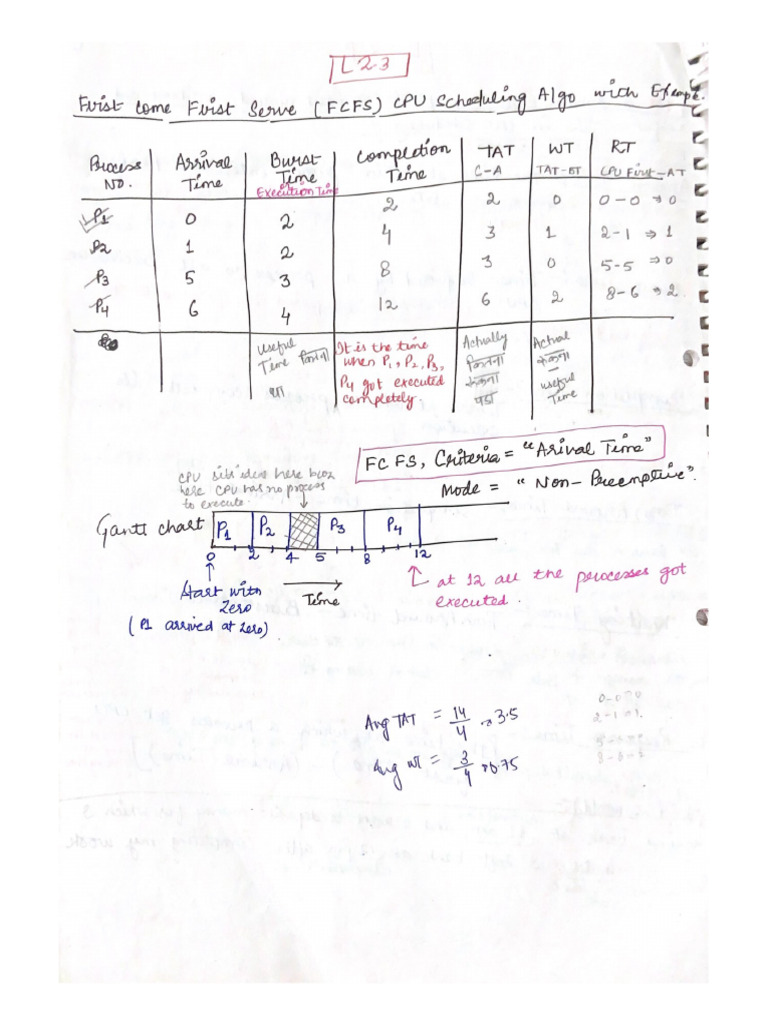 L 2.3
First Come First Serve (FCFS) CPU Scheduling Algo with Example.
Process No. Arrival Time Burst Time Execution Time Completion Time TAT C-A WT TAT-BT RT CPU First-AT
P1 0 2 2 2 0 0-0 ⇒ 0
P2 1 2 4 3 1 2-1 ⇒ 1
P3 5 3 8 3 0 5-5 ⇒ 0
P4 6 4 12 6 2 8-6 ⇒ 2
Useful Time कितना था
It is the time when P1, P2, P3, P4 got executed completely.
Actually कितना रुकना पड़ा
Actual रुकना – useful Time
FCFS, Criteria = "Arival Time"
Mode = "Non-Preemptive".
CPU sits ideal here bcoz
here CPU has no process
to execute.
Gantt chart P1 P2 P3 P4
0 2 4 5 8 12
Start with Zero
(P1 arrived at zero)
Time
at 12 all the processes got
executed.
Avg TAT = 14/4 ⇒ 3.5
Avg WT = 3/4 ⇒ 0.75